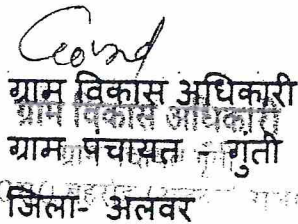 ग्राम विकास अधिकारी
ग्राम विकास अधिकारी
ग्राम पंचायत - गुती
जिला- अलवर